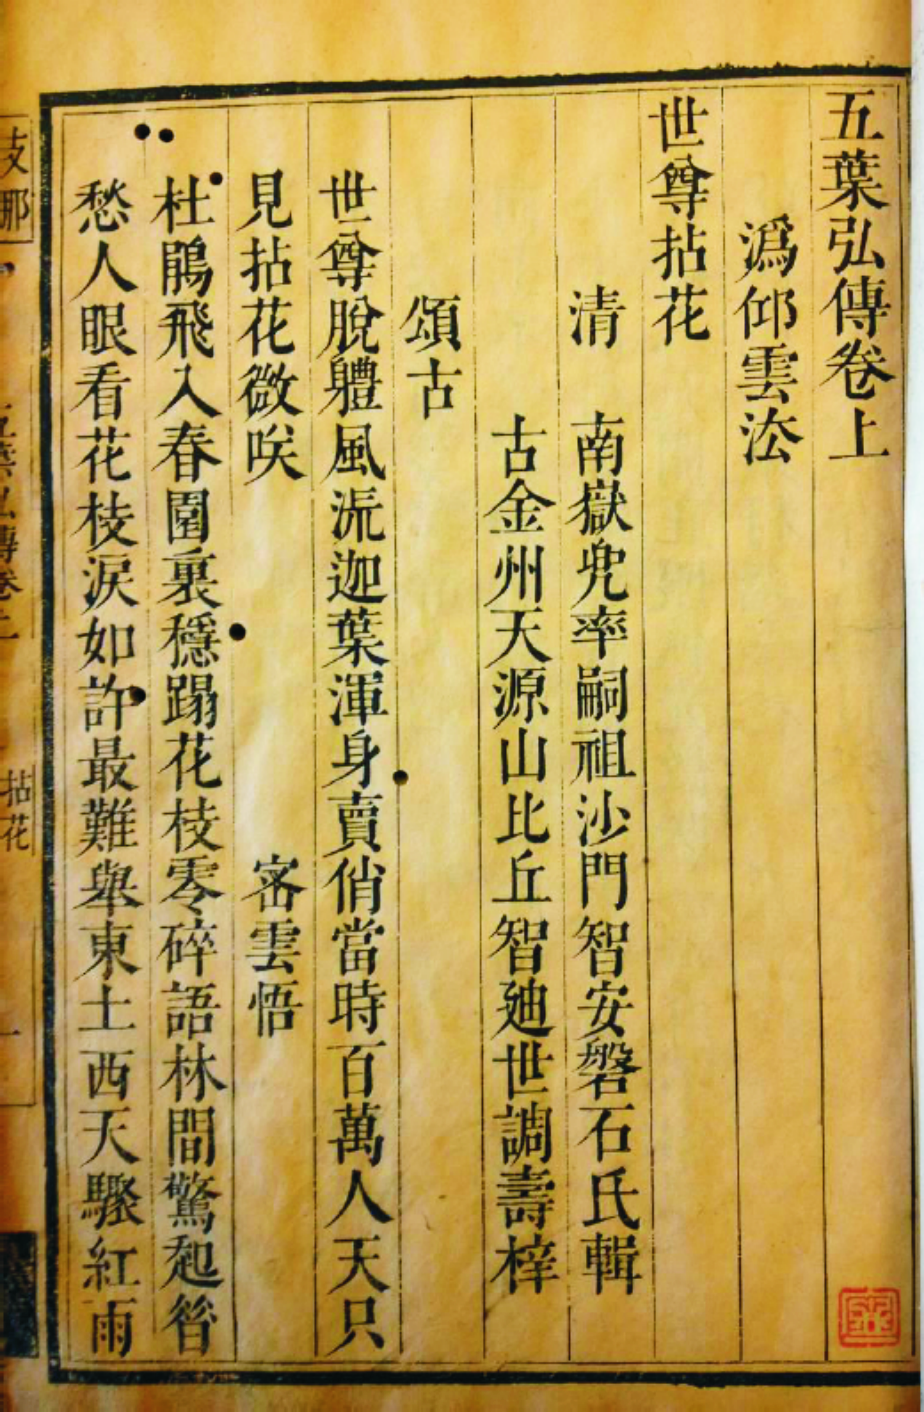 五葉弘傳卷上
溈仰雲㳒
世尊拈花
清 南嶽兜率嗣祖沙門智安磐石氏輯
古金州天源山比丘智廸世調壽梓
頌古
世尊脫軆風流迦葉渾身賣俏當時百萬人天只
見拈花微咲 密雲悟
杜鵑飛入春園裏穩蹋花枝零碎語林間驚起
愁人眼看花枝淚如許最難舉東土西天驟紅雨
支那
五葉弘傳卷上
拈花
一